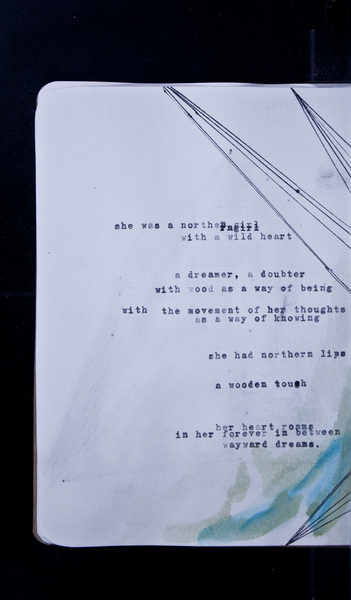 she was a northern girl
with a wild heart
a dreamer, a doubter
with wood as a way of being
with the movement of her thoughts
as a way of knowing
she had northern lips
a wooden tough
her heart roams
in her forever in between
wayward dreams.